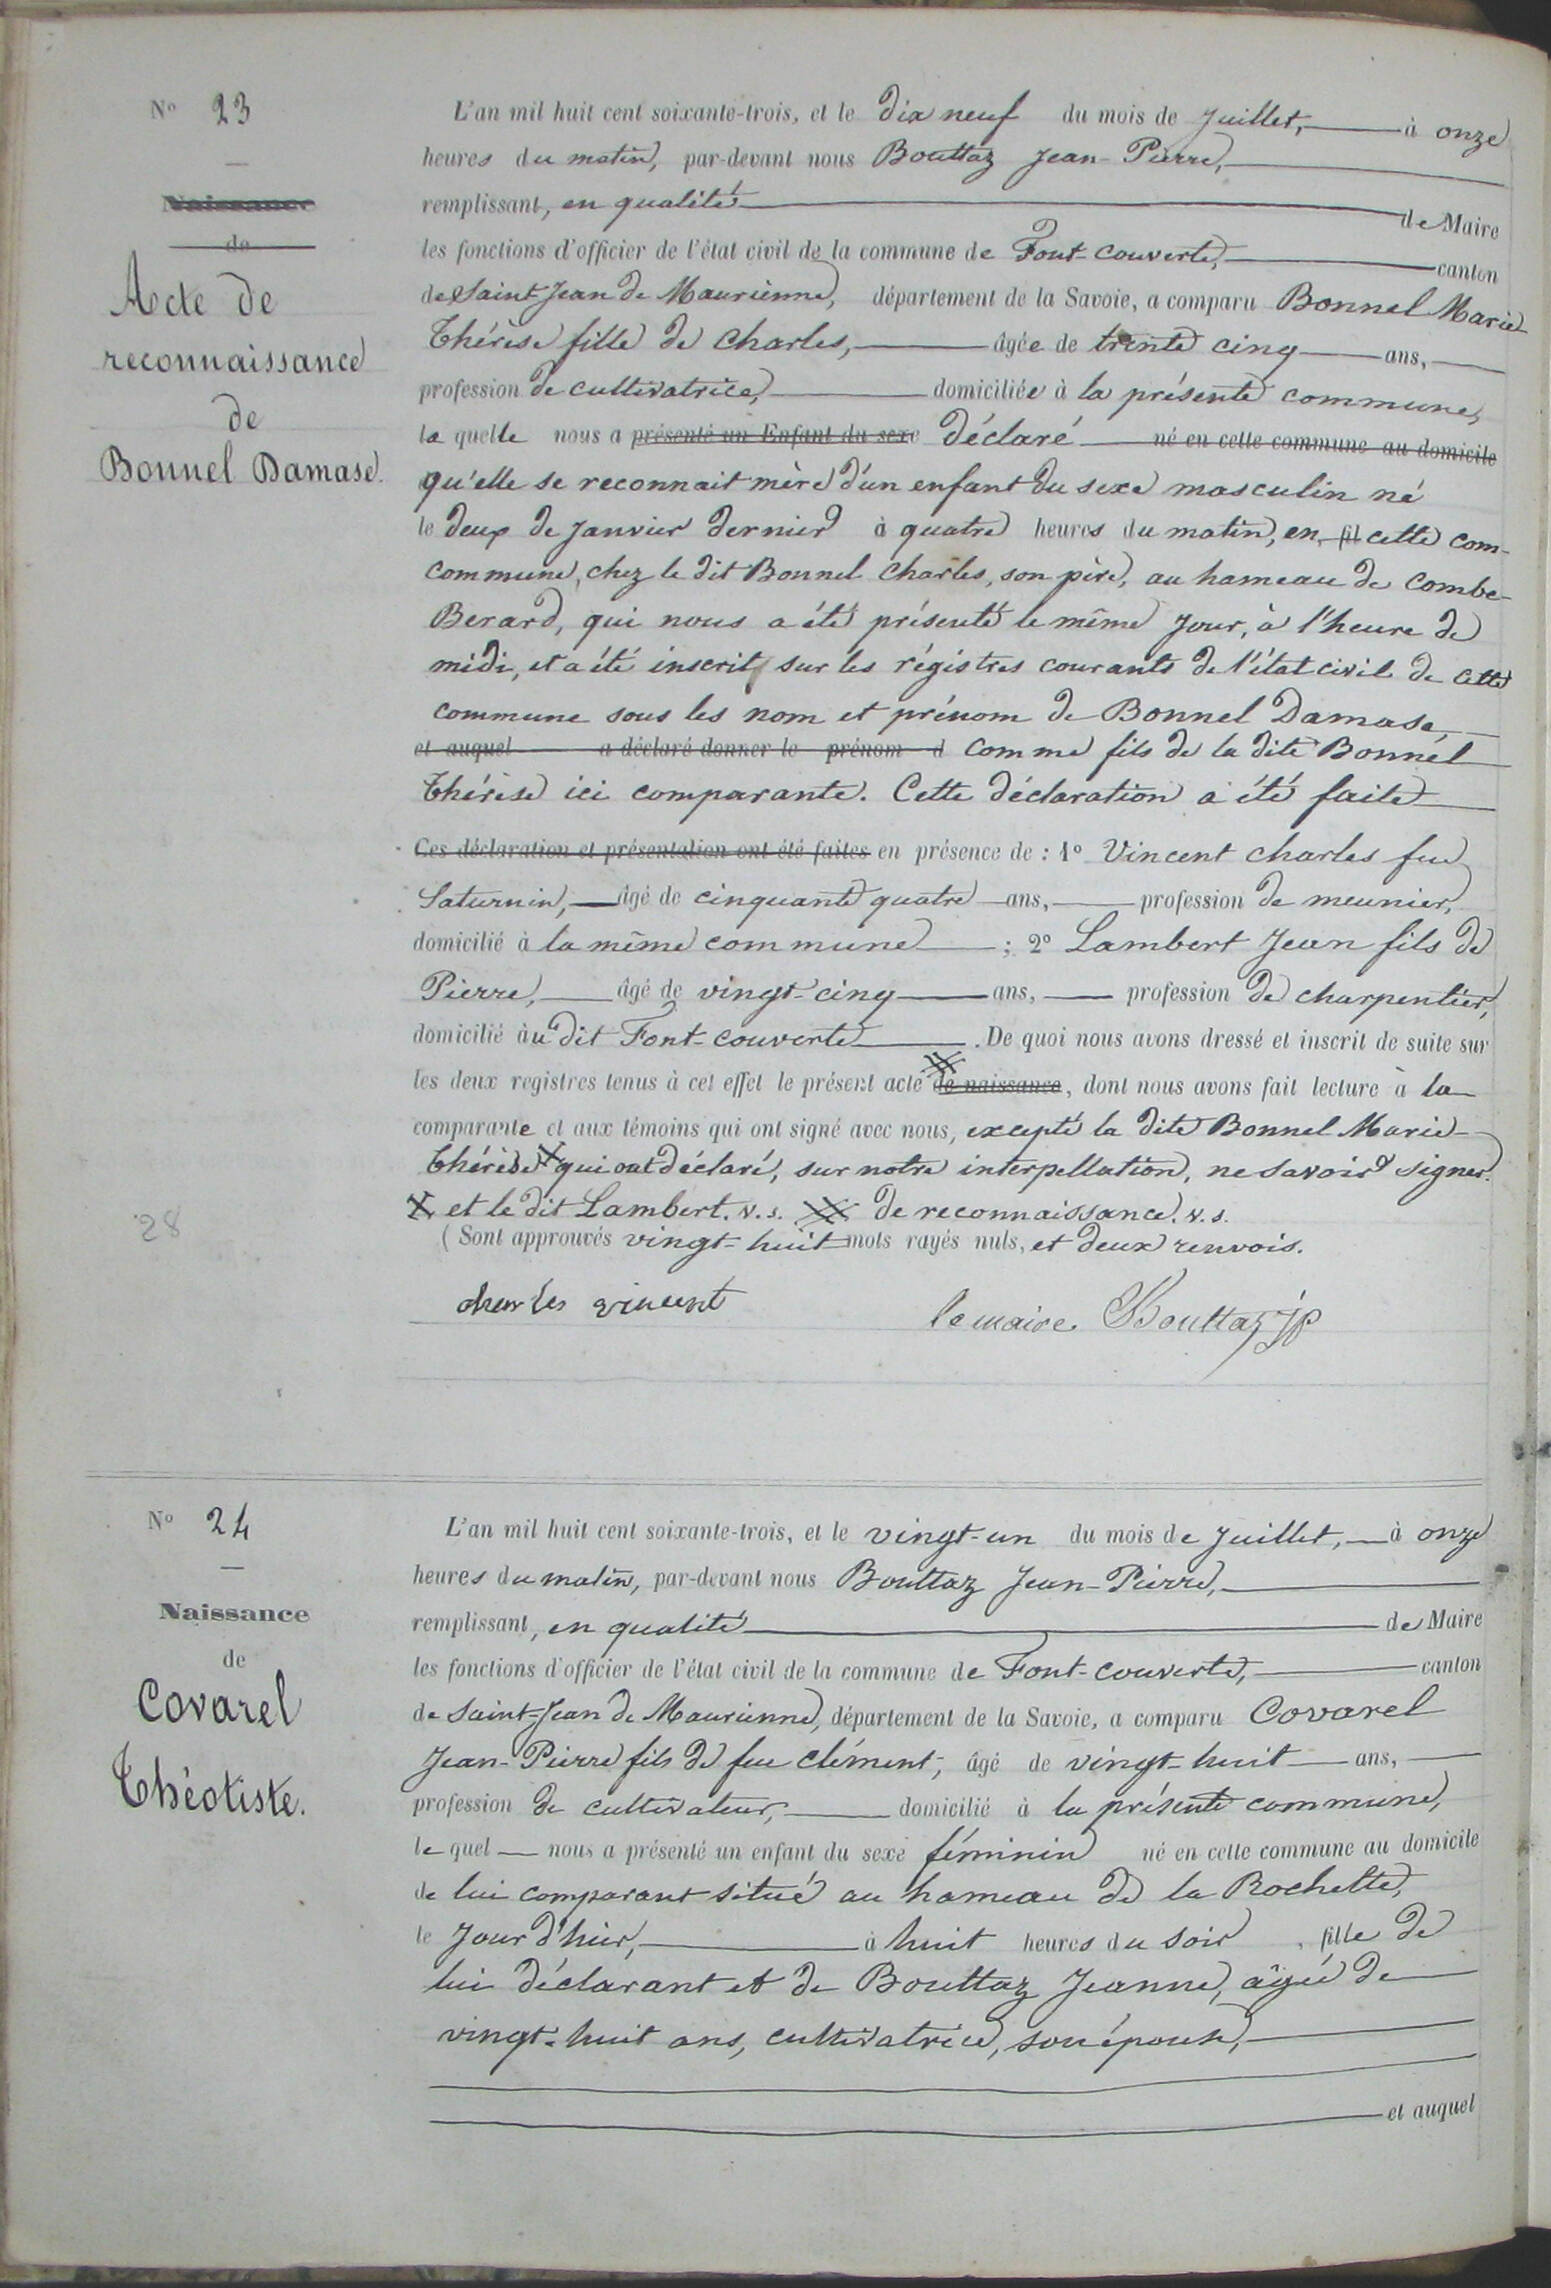 N° 23
Naissance
de
Acte de
reconnaissance
de
Bonnel Damase.
L'an mil huit cent soixante-trois, et le dix neuf du mois de Juillet, à onze
heures du matin, par-devant nous Bouttaz Jean-Pierre,
remplissant, en qualité de Maire
les fonctions d'officier de l'état civil de la commune de Font-couverte, canton
de Saint-Jean de Maurienne, département de la Savoie, a comparu Bonnel Marie
Thérèse fille de Charles, âgée de trente cinq ans,
profession de cultivatrice, domiciliée à la présente commune,
la quelle nous a présenté un Enfant du sexe déclaré né en cette commune au domicile
qu'elle se reconnait mère d'un enfant du sexe masculin né
le deux de Janvier dernier à quatre heures du matin, en fil cette com-
commune, chez le dit Bonnel Charles, son père, au hameau de Combe-
Berard, qui nous a été présenté le même jour, à l'heure de
midi, et a été inscrit sur les régistres courants de l'état civil de cette
commune sous les nom et prénom de Bonnel Damase,
et auquel a déclaré donner le prénom d comme fils de la dite Bonnel
Thérèse ici comparante. Cette déclaration a été faite
Ces déclaration et présentation ont été faites en présence de : 1° Vincent Charles feu
Saturnin, âgé de cinquante quatre ans, profession de meunier,
domicilié à la même commune ; 2° Lambert Jean fils de
Pierre, âgé de vingt-cinq ans, profession de charpentier,
domicilié àu dit Font-couverte. De quoi nous avons dressé et inscrit de suite sur
les deux registres tenus à cet effet le présent acte de naissance, dont nous avons fait lecture à la
comparante et aux témoins qui ont signé avec nous, excepté la dite Bonnel Marie
Thérèse X qui ont déclaré, sur notre interpellation, ne savoir signer.
X et le dit Lambert. v. s. XX de reconnaissance. v. s.
(Sont approuvés vingt-huit mots rayés nuls, et deux renvois.
28
charles vincent le maire Bouttaz jp
N° 24
Naissance
de
Covarel
Théotiste.
L'an mil huit cent soixante-trois, et le vingt-un du mois de Juillet, à onze
heures du matin, par-devant nous Bouttaz Jean-Pierre,
remplissant, en qualité de Maire
les fonctions d'officier de l'état civil de la commune de Font-couverte, canton
de Saint-Jean de Maurienne, département de la Savoie, a comparu Covarel
Jean-Pierre fils de feu Clément, âgé de vingt-huit ans,
profession de cultivateur, domicilié à la présente commune,
le quel nous a présenté un enfant du sexe féminin né en cette commune au domicile
de lui comparant situé au hameau de la Rochette,
le Jour d'hier, à huit heures du soir, fille de
lui déclarant et de Bouttaz Jeanne, âgée de
vingt-huit ans, cultivatrice, son épouse,
et auquel